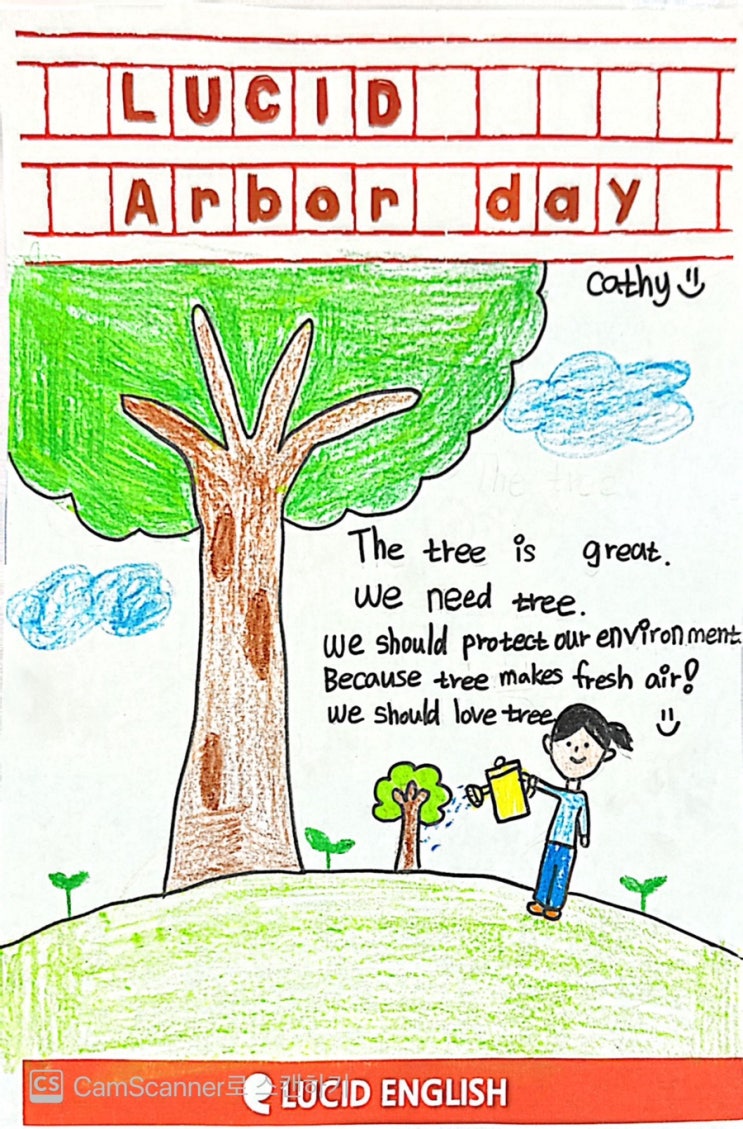 LUCID
Arbor day
cathy
The tree is great.
we need tree.
we should protect our environment
Because tree makes fresh air!
we should love tree
CS CamScanner로 스캔하기
LUCID ENGLISH